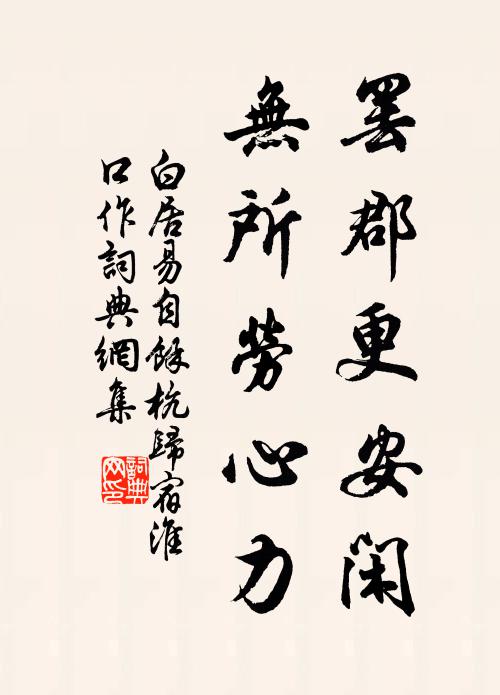 罷郡更安閑
無所勞心力
白居易自餘杭歸宿淮
口作詞典網集
詞典
网印